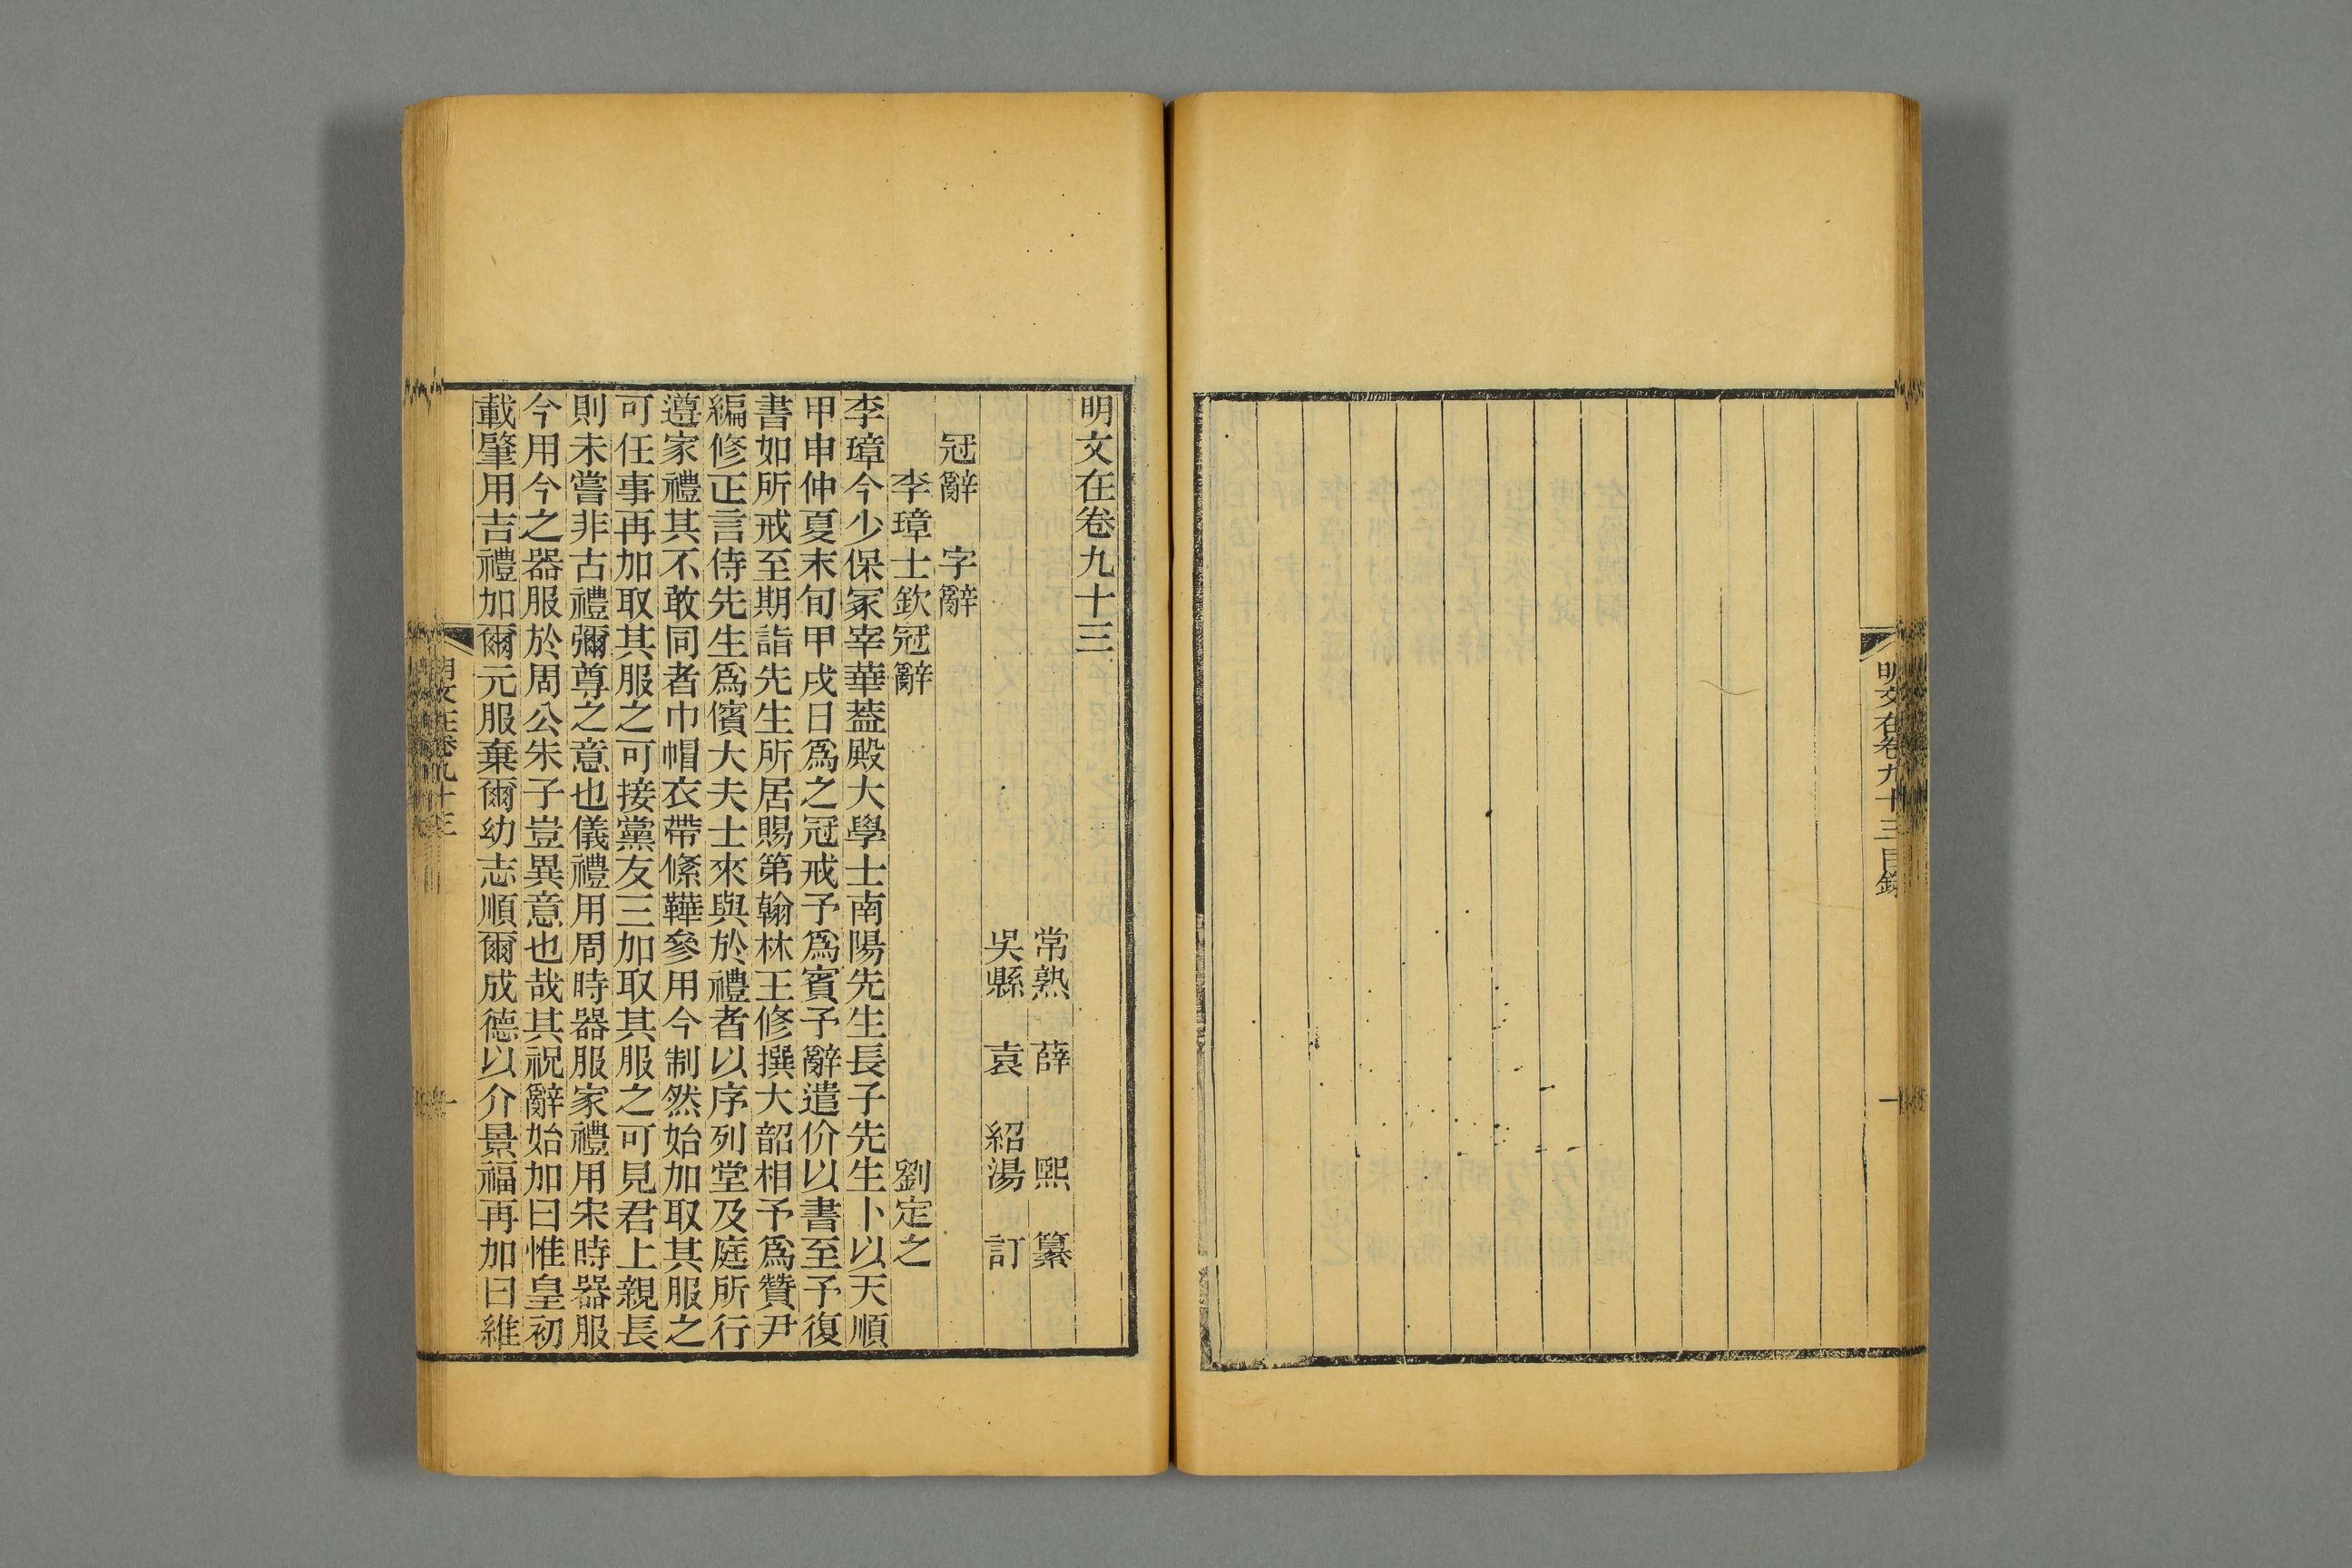 明文在卷九十三目錄
一
明文在卷九十三
常熟 薛 熙 纂
吳縣 袁 紹湯 訂
冠辭 字辭
李璋士欽冠辭 劉定之
李璋今少保冢宰華葢殿大學士南陽先生長子先生卜以天順
甲申仲夏末旬甲戌日爲之冠戒予爲賓予辭遣价以書至予復
書如所戒至期詣先生所居賜第翰林王修撰大韶相予爲贊尹
編修正言侍先生爲儐大夫士來與於禮者以序列堂及庭所行
遵家禮其不敢同者巾帽衣帶絛鞾參用今制然始加取其服之
可任事再加取其服之可接黨友三加取其服之可見君上親長
則未嘗非古禮彌尊之意也儀禮用周時器服家禮用宋時器服
今用今之器服於周公朱子豈異意也哉其祝辭始加曰惟皇初
載肇用吉禮加爾元服棄爾幼志順爾成德以介景福再加曰維
明文在卷九十三
一